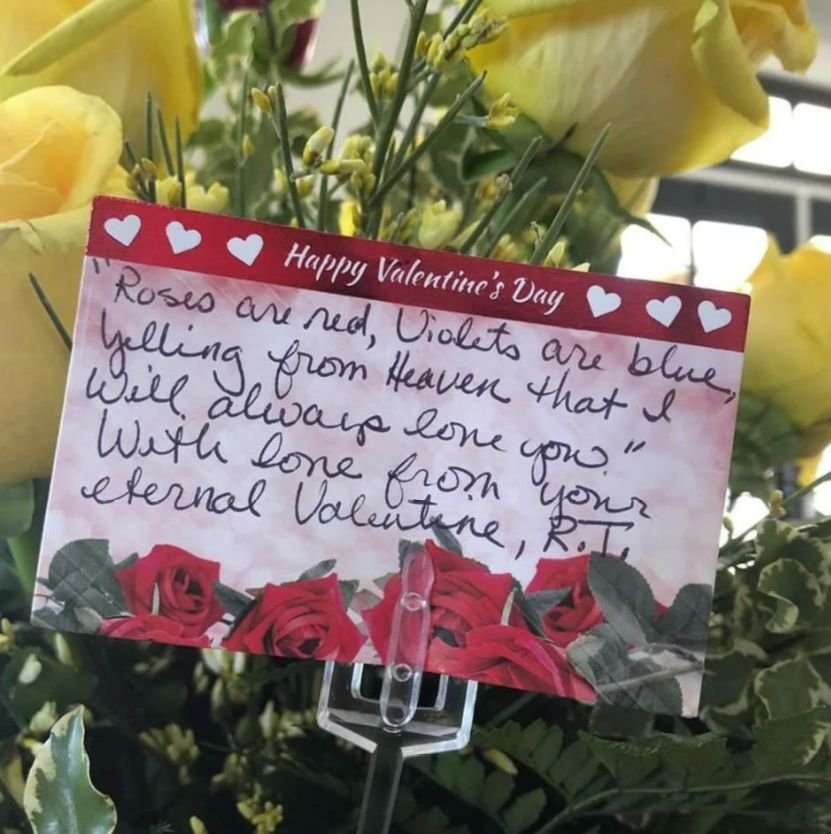 Happy Valentine's Day
"Roses are red, Violets are blue,
Yelling from Heaven that I
Will always love you."
With love from your
eternal Valentine, R.T.